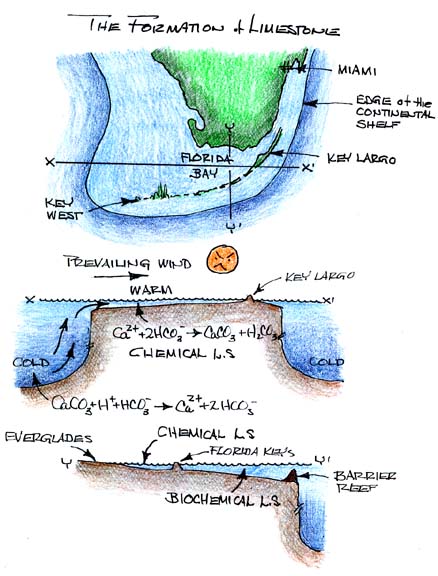 THE FORMATION of LIMESTONE
MIAMI
EDGE of the
CONTINENTAL
SHELF
Y
X
FLORIDA
BAY
X'
KEY LARGO
KEY
WEST
Y'
PREVAILING WIND
KEY LARGO
WARM
X
X'
Ca²⁺+2HCO₃⁻→CaCO₃+H₂CO₃
CHEMICAL L.S
COLD
COLD
CaCO₃+H⁺+HCO₃⁻→Ca²⁺+2HCO₃⁻
CHEMICAL L.S
EVERGLADES
FLORIDA KEY'S
Y
Y'
BIOCHEMICAL L.S
BARRIER
REEF